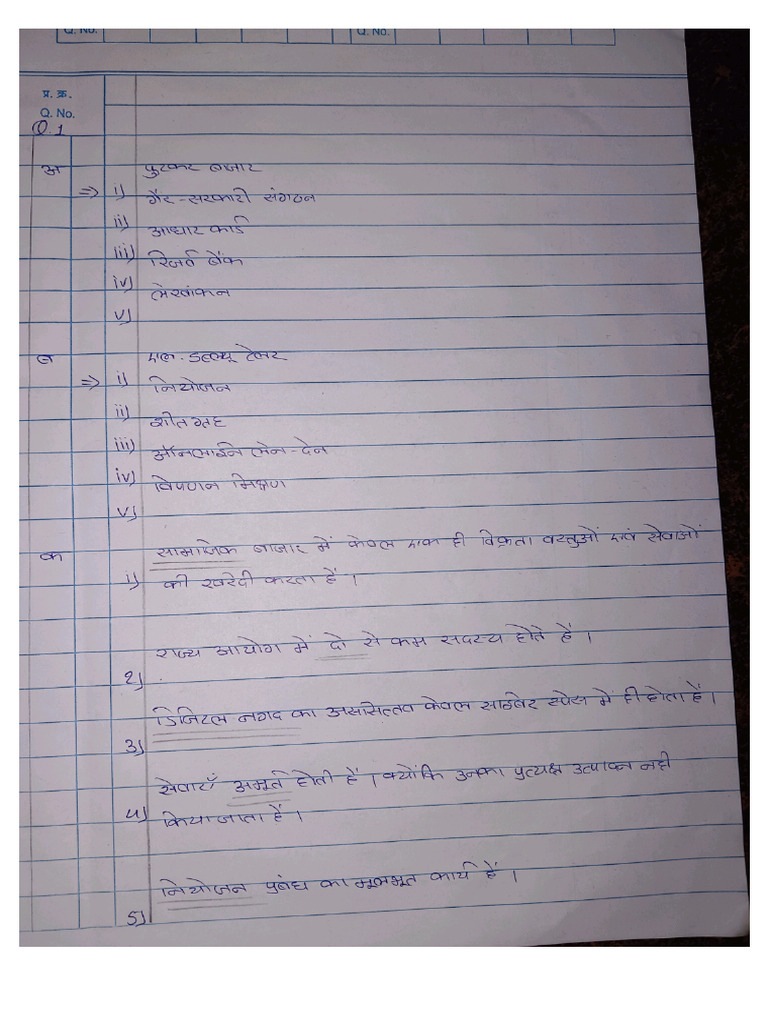 Q. No. Q. No.
प्र. क्र.
Q. No.
Q.1
अ फुटकर बाजार
⇒ i) गैर-सरकारी संगठन
ii) आधार कार्ड
iii) रिजर्व बैंक
iv) लेखांकन
v)
ब एल. डब्ल्यू टेलर
⇒ i) नियोजन
ii) शीतगृह
iii) ऑनलाईन लेन-देन
iv) विपणन मिश्रण
v)
क सामाजिक बाजार में केवल एक ही विक्रेता वस्तुओं एवं सेवाओं
i) की खरेदी करता हैं।
राज्य आयोग में दो से कम सदस्य होते हैं।
2)
डिजिटल नगद का केवल सायबेर स्पेस में ही होता हैं।
3)
सेवाएँ अमूर्त होती हैं। क्योंकि उनका प्रत्यक्ष नही
4) किया जाता हैं।
नियोजन प्रबंध का मूलभूत कार्य हैं।
5)